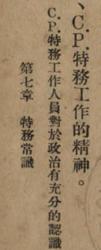 、C.P.特務工作的精神。
C.P.特務工作人員對於政治有充分的認識
第七章　特務常識